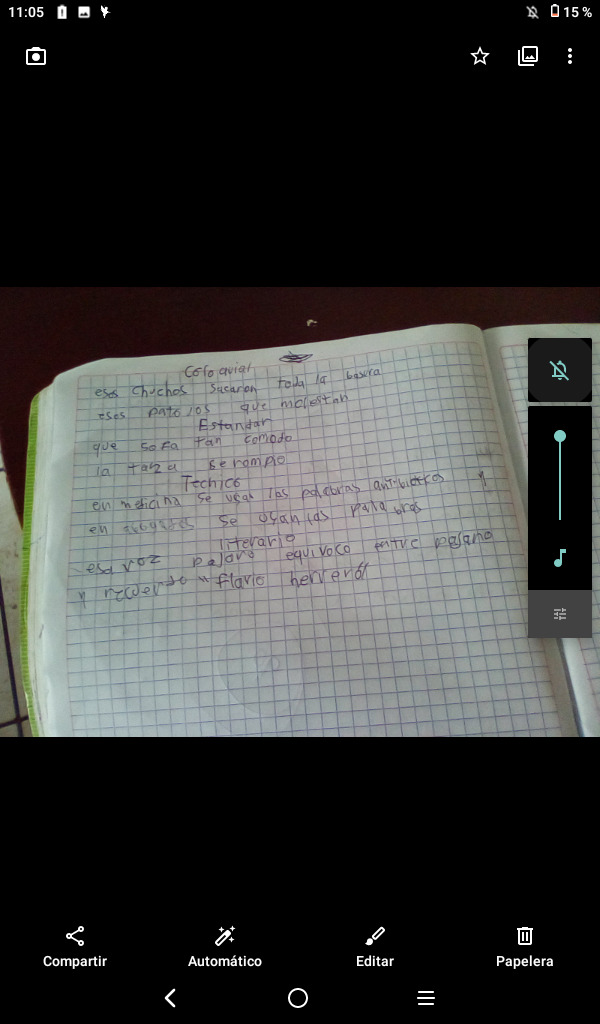 11:05
15 %
Coloquial
esos chuchos sacaron toda la basura
esos patojos que molestan
Estandar
que sofa tan comodo
la taza se rompio
Tecnico
en medicina se usan las palabras antibioticos y
en se usan las palabras
literario
esa voz pajaro equivoco entre pagano
y recuerdo "flavio herrera"
Compartir
Automático
Editar
Papelera